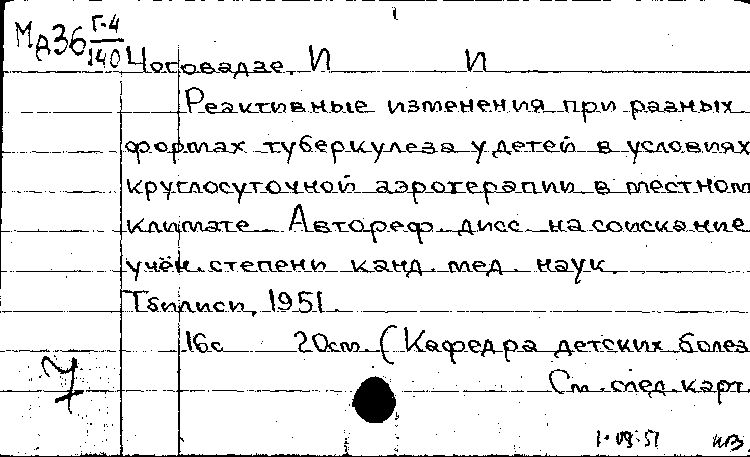 Мд36 Г-4
140
Чоговадзе. И И
Реактивные изменения при разных
формах туберкулеза у детей в условиях
круглосуточной аэротерапии в местном
климате. Автореф. дисс. на соискание
учён. степени канд. мед. наук.
Тбилиси, 1951.
16с 20см. (Кафедра детских болез
См. след. карт.
1·09·51